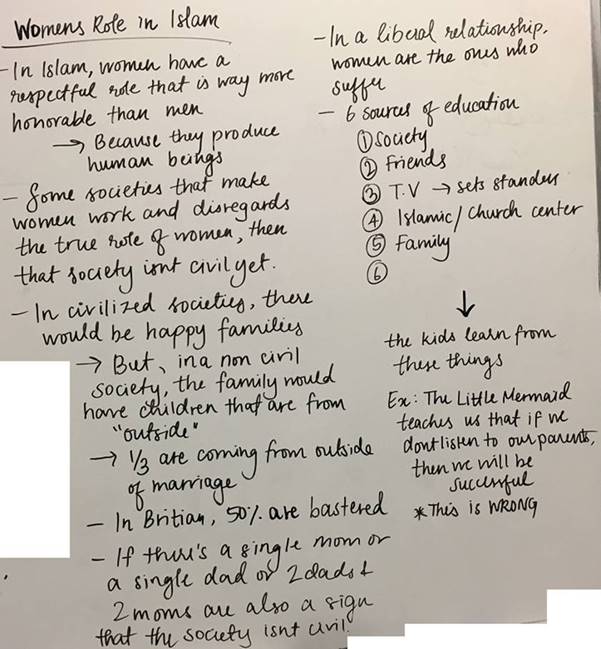 Womens Role in Islam
- In Islam, women have a
respectful role that is way more
honorable than men
→ Because they produce
human beings
- Some societies that make
women work and disregards
the true role of women, then
that society isnt civil yet.
- In civilized societies, there
would be happy families
→ But, in a non civil
society, the family would
have children that are from
"outside"
→ 1/3 are coming from outside
of marriage
- In Britian, 50% are bastered
- If there's a single mom or
a single dad or 2 dads +
2 moms are also a sign
that the society isnt civil.
- In a liberal relationship,
women are the ones who
suffer
- 6 sources of education
① Society
② Friends
③ T.V → sets standers
④ Islamic/Church center
⑤ Family
⑥
↓
the kids learn from
these things
Ex: The Little Mermaid
teaches us that if we
dont listen to our parents,
then we will be
successful
*This is WRONG